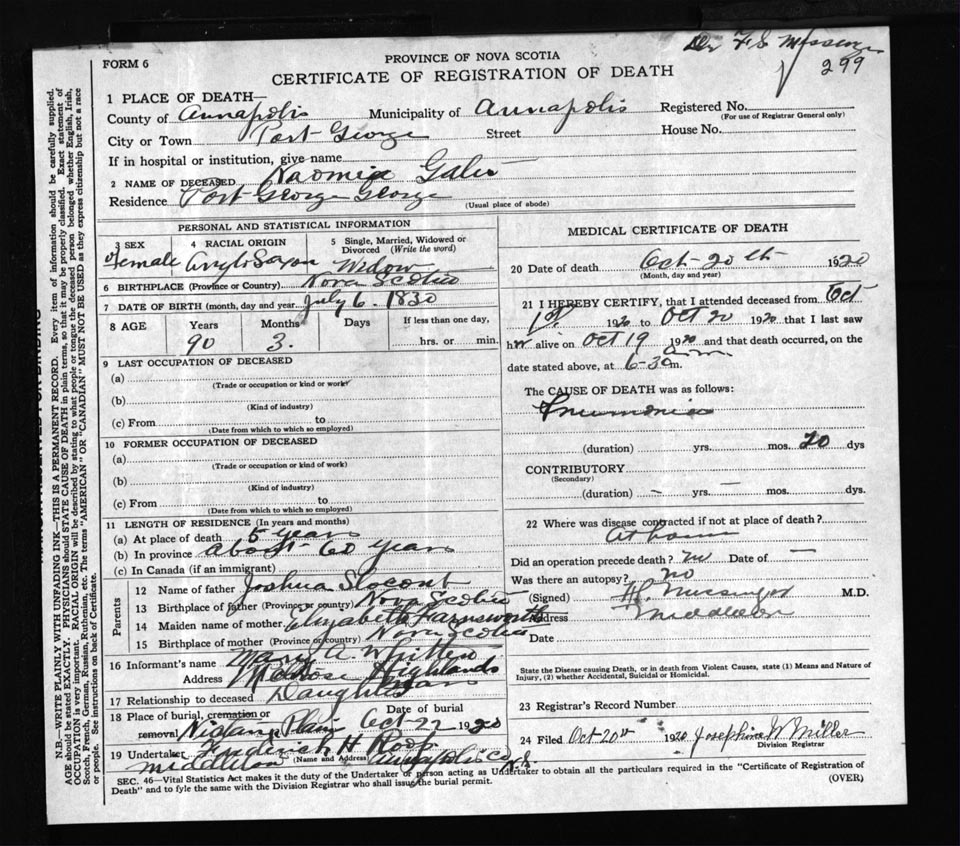 Dr F S Messenger
299
FORM 6
PROVINCE OF NOVA SCOTIA
CERTIFICATE OF REGISTRATION OF DEATH
1 PLACE OF DEATH—
County of Annapolis Municipality of Annapolis Registered No.
(For use of Registrar General only)
City or Town Port George Street House No.
If in hospital or institution, give name
2 NAME OF DECEASED Naomia Gates
Residence Port George George
(Usual place of abode)
PERSONAL AND STATISTICAL INFORMATION
3 SEX 4 RACIAL ORIGIN 5 Single, Married, Widowed or Divorced (Write the word)
Female Anglo Saxon Widow
6 BIRTHPLACE (Province or Country) Nova Scotia
7 DATE OF BIRTH (month, day and year) July 6. 1830
8 AGE Years Months Days If less than one day,
90 3. hrs. or min.
9 LAST OCCUPATION OF DECEASED
(a)
(Trade or occupation or kind or work)
(b)
(Kind of industry)
(c) From to
(Date from which to which so employed)
10 FORMER OCCUPATION OF DECEASED
(a)
(Trade or occupation or kind of work)
(b)
(Kind of industry)
(c) From to
(Date from which to which so employed)
11 LENGTH OF RESIDENCE (In years and months)
(a) At place of death 5 years
(b) In province about 60 years
(c) In Canada (if an immigrant)
Parents
12 Name of father Joshua Slocomb
13 Birthplace of father (Province or country) Nova Scotia
14 Maiden name of mother Elizabeth Farnsworth
15 Birthplace of mother (Province or country) Nova Scotia
16 Informant's name Mary A. Whitten
Address Melrose Highlands
Mass
17 Relationship to deceased Daughter
18 Place of burial, cremation or removal Date of burial
Nictaux Plain Oct-22 1920
19 Undertaker Frederick H Roop
(Name and Address)
Middleton Annapolis Co N.S.
MEDICAL CERTIFICATE OF DEATH
20 Date of death Oct-20th 1920
(Month, day and year)
21 I HEREBY CERTIFY, that I attended deceased from Oct
1st. 1920 to Oct 20 1920 that I last saw
her alive on Oct 19 1920 and that death occurred, on the
date stated above, at 6-30 a.m.
The CAUSE OF DEATH was as follows:
Pneumonia
(duration) yrs. mos. 20 dys
CONTRIBUTORY
(Secondary)
(duration) — yrs. — mos. dys.
22 Where was disease contracted if not at place of death?
at home
Did an operation precede death? no Date of —
Was there an autopsy? no
(Signed) M.D.
Address Middleton
Date
State the Disease causing Death, or in death from Violent Causes, state (1) Means and Nature of
Injury, (2) whether Accidental, Suicidal or Homicidal.
23 Registrar's Record Number
24 Filed Oct 20th 1920 Josephine W Miller
Division Registrar
SEC. 46—Vital Statistics Act makes it the duty of the Undertaker or person acting as Undertaker to obtain all the particulars required in the "Certificate of Registration of
Death" and to fyle the same with the Division Registrar who shall issue the burial permit. (OVER)
N.B.—WRITE PLAINLY WITH UNFADING INK—THIS IS A PERMANENT RECORD. Every item of information should be carefully supplied.
AGE should be stated EXACTLY. PHYSICIANS should STATE CAUSE OF DEATH in plain terms, so that it may be properly classified. Exact statement of
OCCUPATION is very important. RACIAL ORIGIN will be described by stating to what people or tongue the deceased person belonged whether English, Irish,
Scotch, French, German, Russian, Ruthenian, etc. The terms "AMERICAN" or "CANADIAN" MUST NOT BE USED as they express citizenship but not a race
or people. See instructions on back of Certificate.